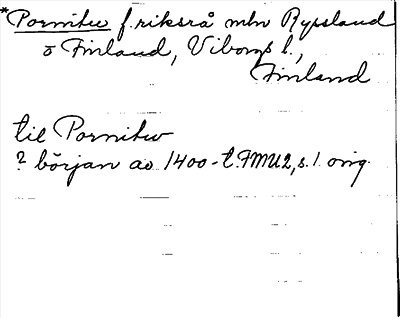 *Pornitw f. riksrå mln Ryssland
o Finland, Viborgs l.,
Finland
til Pornitw
? början av 1400-t. FMU2, s. 1. orig.